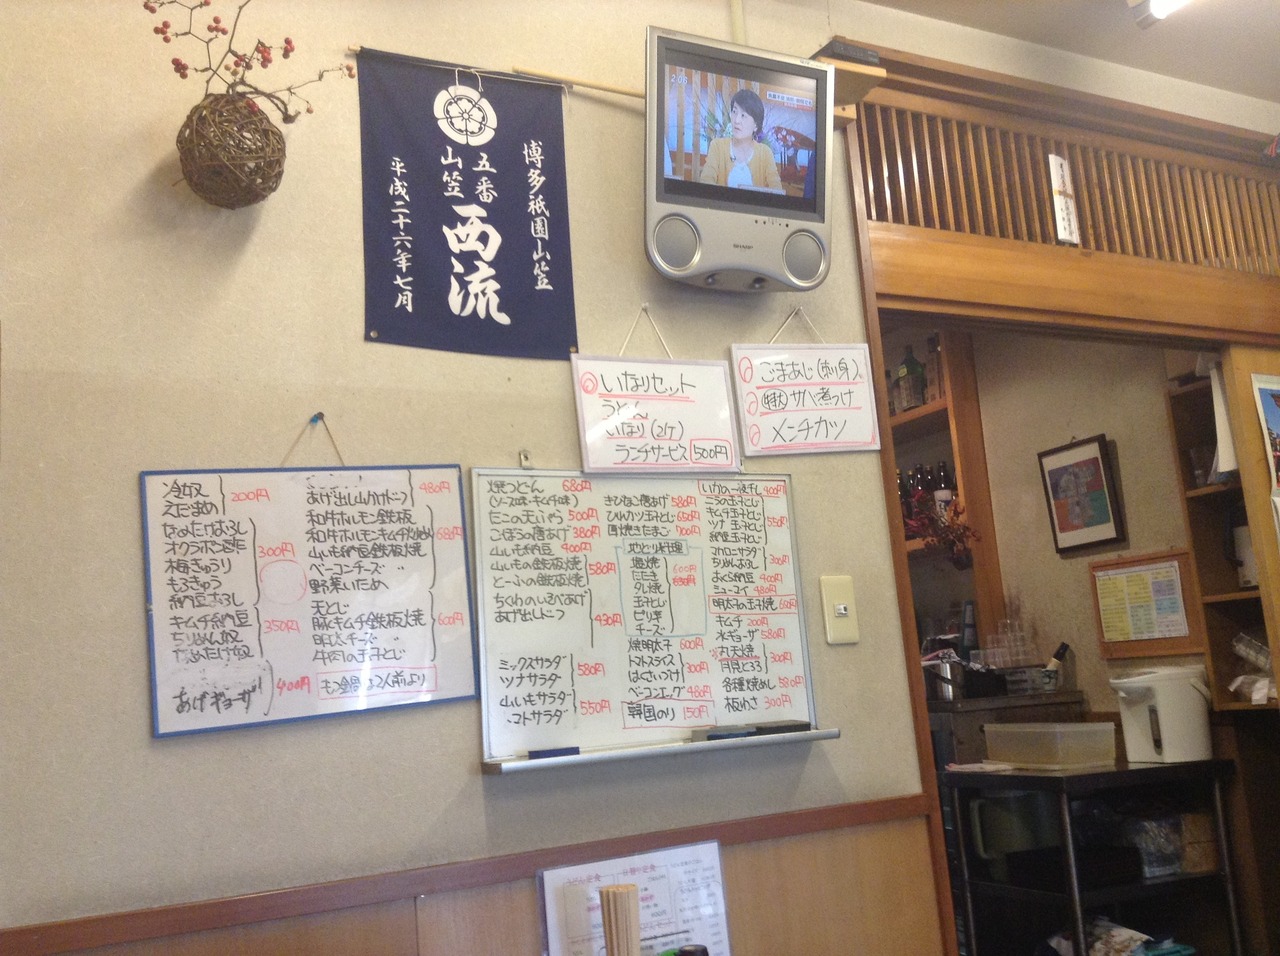 博多祇園山笠
五番
山笠
西流
平成二十六年七月
2:05
SHARP
いなりセット
うどん
いなり(2ケ)
ランチサービス 500円
ごまあじ(刺身)
サバ煮つけ
メンチカツ
冷奴
えだまめ
200円
オクラポン酢
梅きゅうり
もろきゅう
300円
キムチ納豆
ちりめん奴
350円
あげギョーザ
400円
あげ出し山かけ
480円
和牛ホルモン鉄板
和牛ホルモンキムチ
山いも納豆鉄板焼
ベーコンチーズ 〃
野菜いため
680円
天とじ
豚キムチ鉄板焼
明太チーズ 〃
牛肉の玉子とじ
600円
もつ鍋 2人前より
焼うどん 680円
(ソース味・キムチ味)
たこの天ぷら 500円
ごぼうの唐あげ 380円
山いも納豆 400円
山いもの鉄板焼
とーふの鉄板焼
580円
ちくわのいそべあげ
あげ出しどうふ
430円
ミックスサラダ
ツナサラダ
580円
山いもサラダ
トマトサラダ
550円
きびなご唐あげ 580円
ひレカツ玉子とじ 650円
地どり料理
塩焼
たたき
タレ焼
玉子とじ
ピリ辛
チーズ
焼明太子 600円
トマトスライス
はくさいつけ
300円
ベーコンエッグ 480円
韓国のり 150円
いかの一夜干し 400円
ニラの玉子とじ
キムチ玉子とじ
ツナ玉子とじ
納豆玉子とじ
550円
マカロニサラダ
ちりめんおろし
300円
おくら納豆 400円
明太子の玉子焼
キムチ 200円
水ギョーザ 580円
丸天焼
月見とろろ
300円
各種焼めし 580円
板わさ 300円
うどん定食